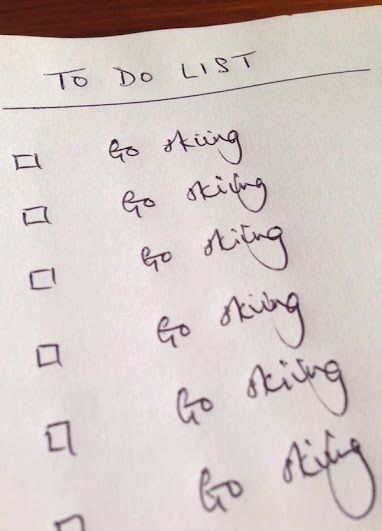 TO DO LIST
Go skiing
Go skiing
Go skiing
Go skiing
Go skiing
Go skiing